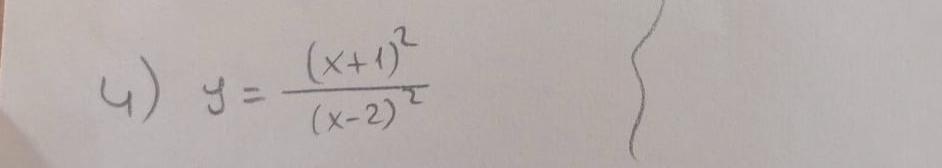 4) y = (x+1)² / (x-2)²